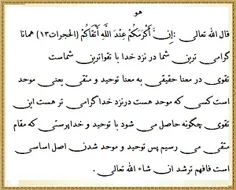 هو
قال الله تعالی :إِنَّ أَكْرَمَكُمْ عِنْدَ اللَّهِ أَتْقَاكُمْ (الحجرات١٣) همانا
گرامی ترین شما در نزد خدا با تقواترین شماست
تقوی در معنا حقیقی به معنا توحید و متقی یعنی موحد
است کسی که موحد هست درنزد خدا گرامی تر هست این
تقوی چگونه حاصل می شود با توحید و خداپرستی که مقام
متقی می رسیم پس توحید و موحد شدن اصل اساسی
است فافهم ترشد ان شاء الله تعالی .